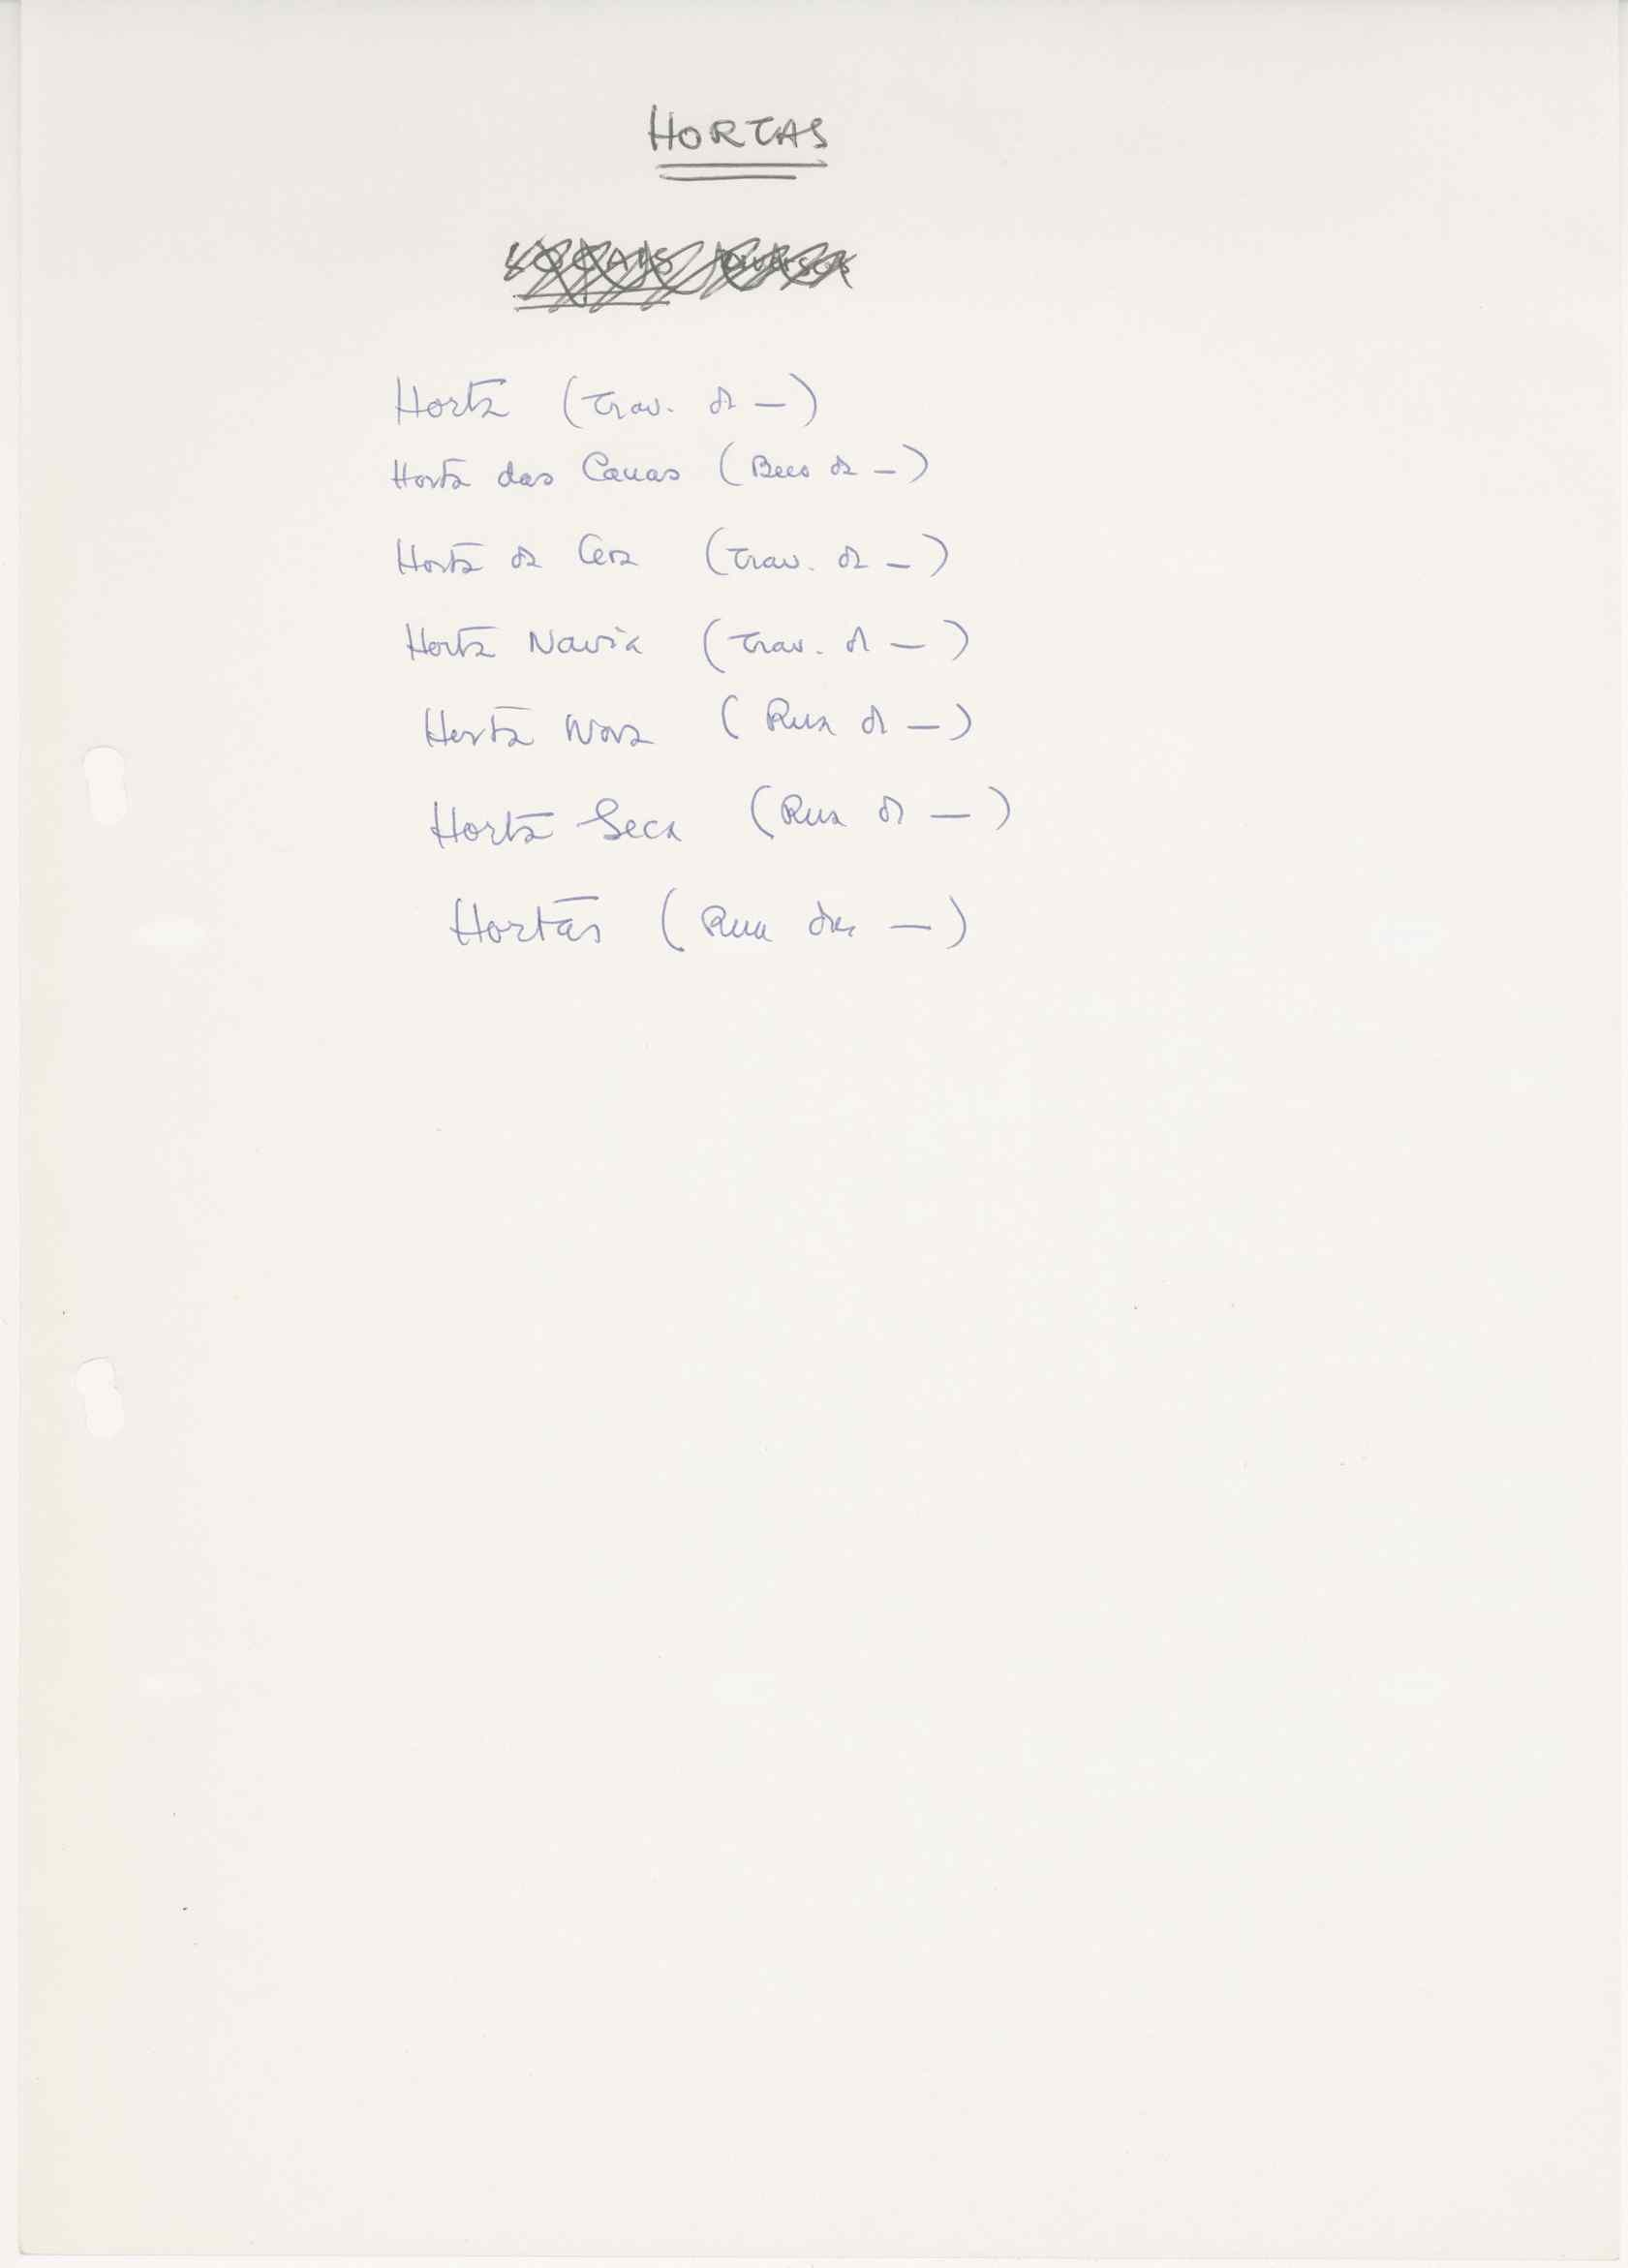 HORTAS
Horta (Trav. da —)
Horta das Canas (Beco da —)
Horta da Cera (Trav. da —)
Horta Navia (Trav. da —)
Horta Nova (Rua da —)
Horta Seca (Rua da —)
Hortas (Rua das —)